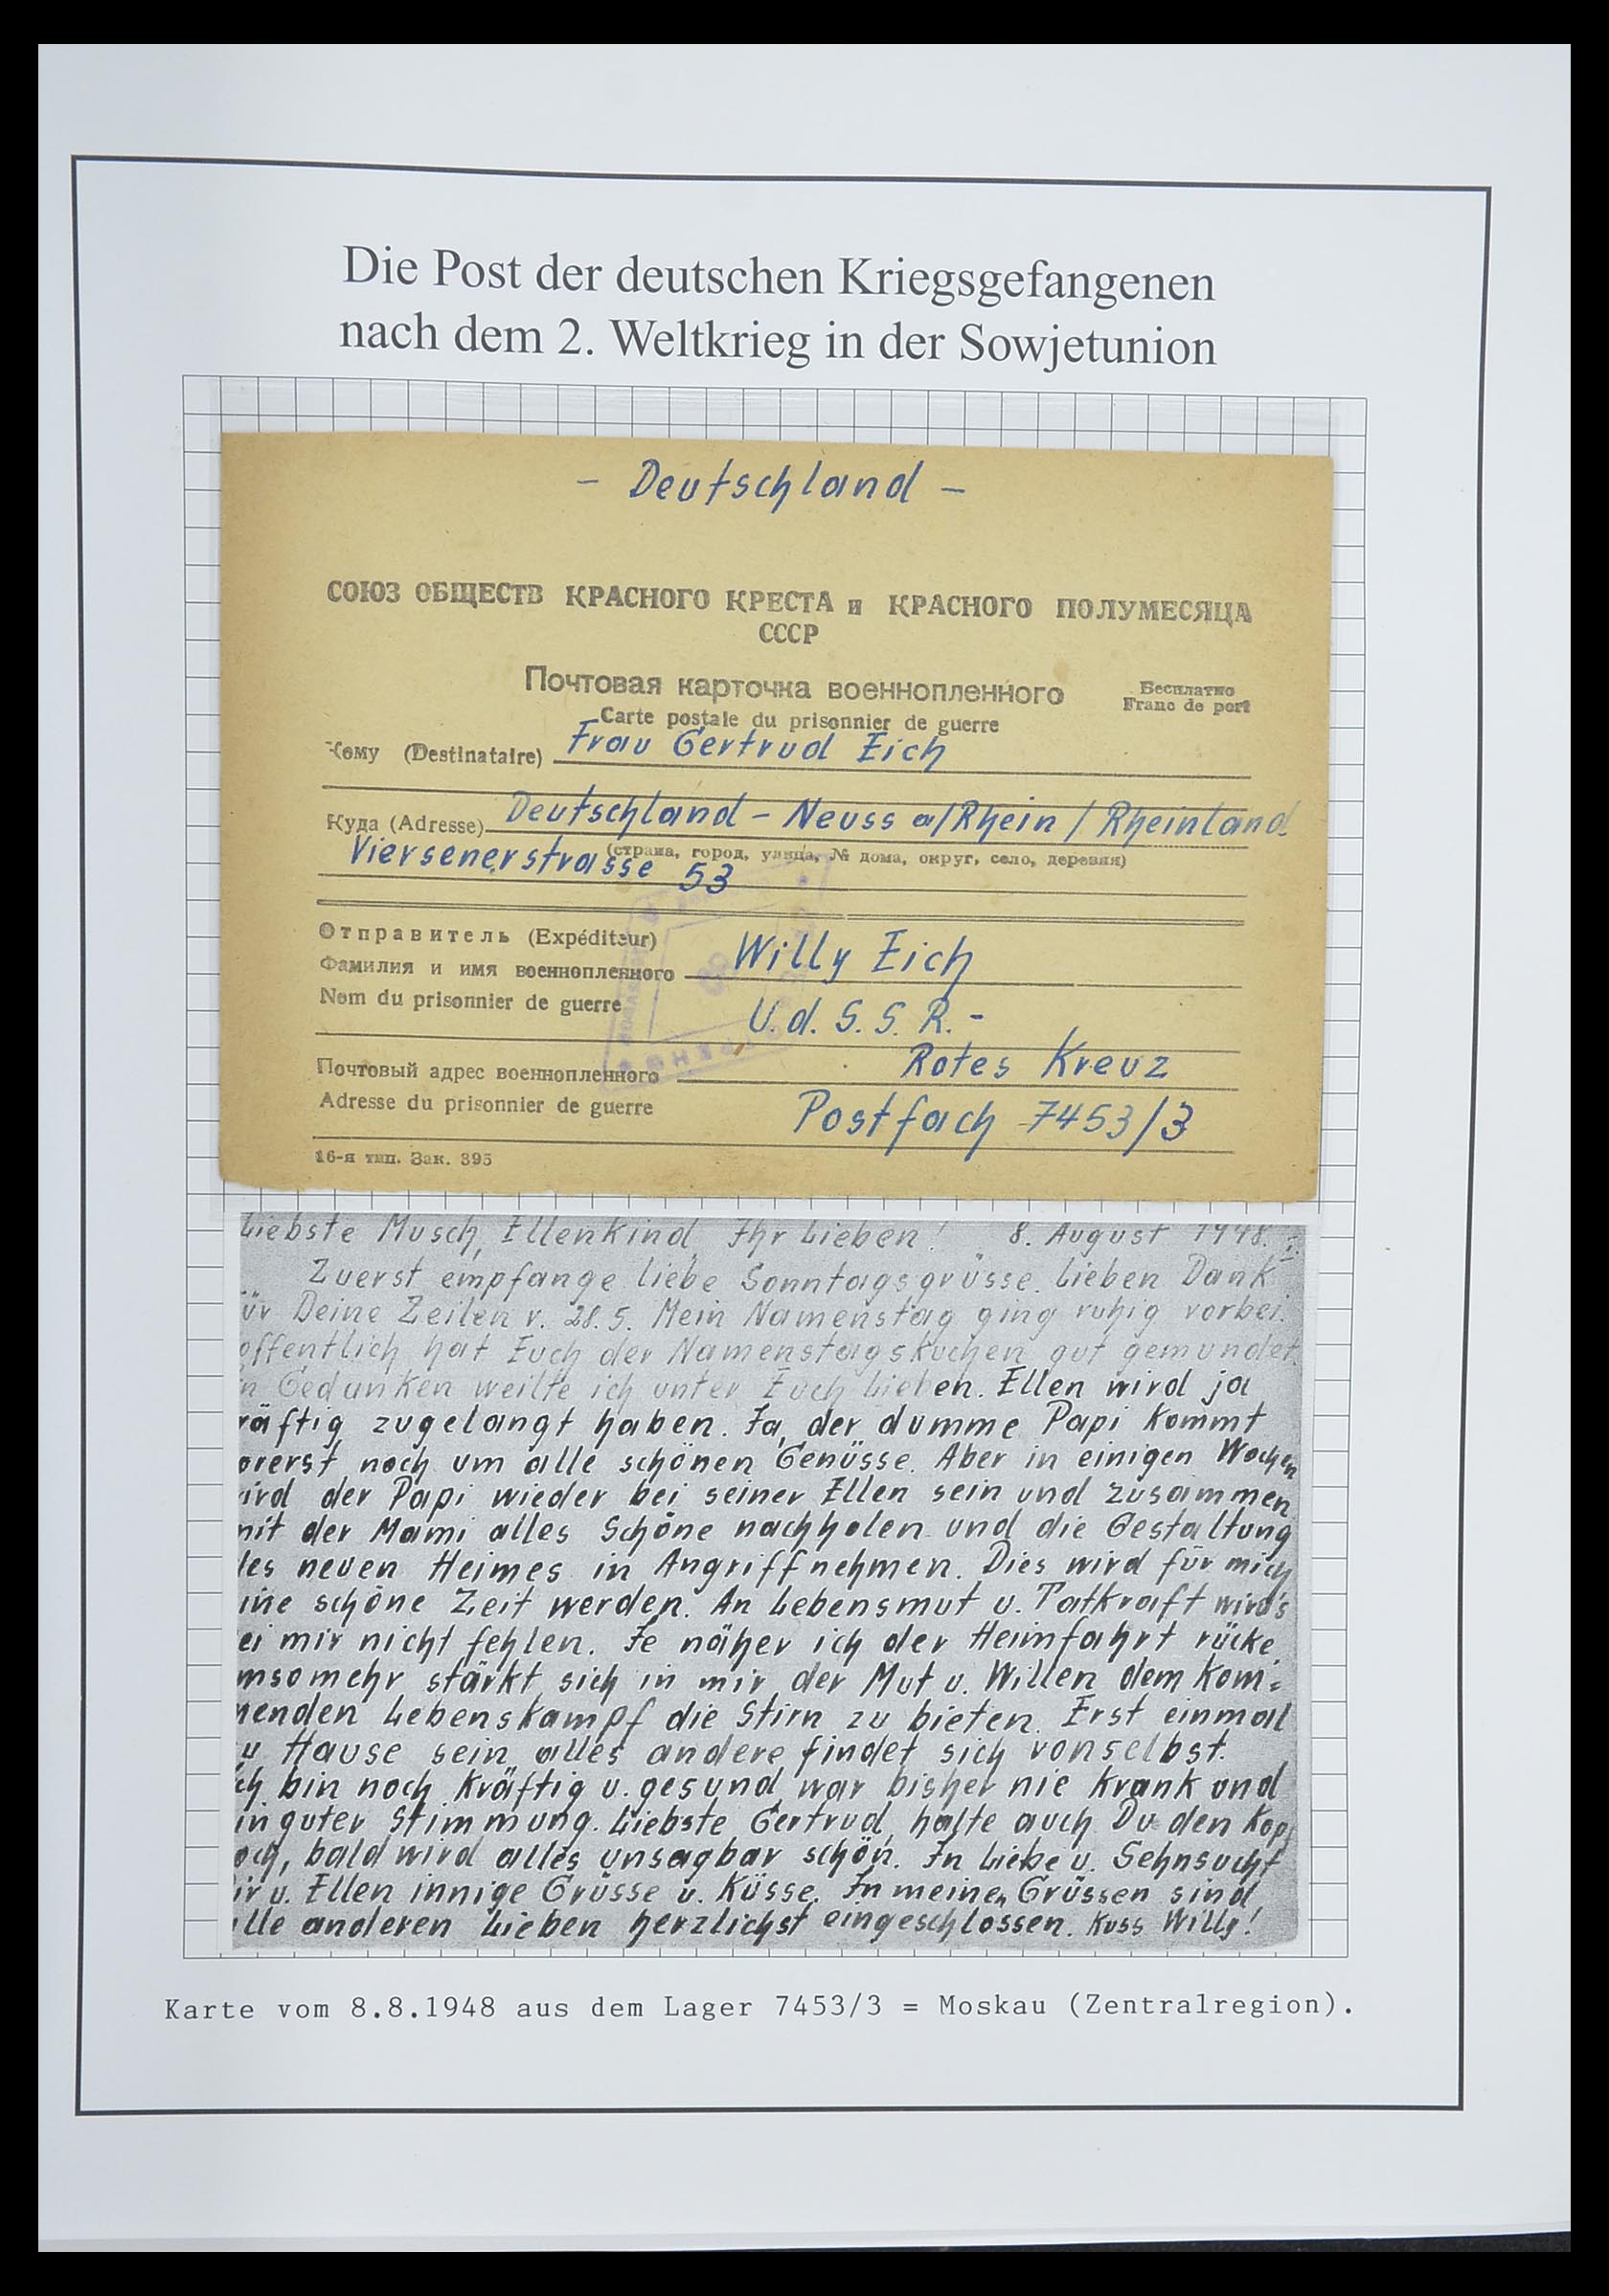 Die Post der deutschen Kriegsgefangenen
nach dem 2. Weltkrieg in der Sowjetunion
- Deutschland -
СОЮЗ ОБЩЕСТВ КРАСНОГО КРЕСТА и КРАСНОГО ПОЛУМЕСЯЦА
СССР
Почтовая карточка военнопленного
Бесплатно
Franc de port
Carte postale du prisonnier de guerre
Кому (Destinataire) Frau Gertrud Eich
Куда (Adresse) Deutschland - Neuss a/Rhein / Rheinland
(страна, город, улица, № дома, округ, село, деревня)
Viersenerstrasse 53
Отправитель (Expéditeur)
Фамилия и имя военнопленного Willy Eich
Nom du prisonnier de guerre
U.d.S.S.R.-
Rotes Kreuz
Почтовый адрес военнопленного
Adresse du prisonnier de guerre
Postfach 7453/3
16-я тип. Зак. 395
Liebste Musch, Ellenkind, Ihr Lieben! 8. August 1948.
Zuerst empfange liebe Sonntagsgrüsse. Lieben Dank
ür Deine Zeilen v. 28.5. Mein Namenstag ging ruhig vorbei.
offentlich hat Euch der Namenstagskuchen gut gemundet.
n Gedanken weilte ich unter Euch Lieben. Ellen wird ja
räftig zugelangt haben. Ja, der dumme Papi kommt
orerst noch um alle schönen Genüsse. Aber in einigen Wochen
ird der Papi wieder bei seiner Ellen sein und zusammen
mit der Mami alles Schöne nachholen und die Gestaltung
des neuen Heimes in Angriff nehmen. Dies wird für mich
ine schöne Zeit werden. An Lebensmut u. Tatkraft wird's
ei mir nicht fehlen. Je näher ich der Heimfahrt rücke,
msomehr stärkt sich in mir der Mut u. Willen dem kom=
menden Lebenskampf die Stirn zu bieten. Erst einmal
u Hause sein, alles andere findet sich vonselbst.
ch bin noch kräftig u. gesund, war bisher nie krank und
in guter Stimmung. Liebste Gertrud, halte auch Du den Kopf
och, bald wird alles unsagbar schön. In Liebe u. Sehnsucht
ir u. Ellen innige Grüsse u. Küsse. In meinen Grüssen sind
lle anderen Lieben herzlichst eingeschlossen. Kuss Willy!
Karte vom 8.8.1948 aus dem Lager 7453/3 = Moskau (Zentralregion).